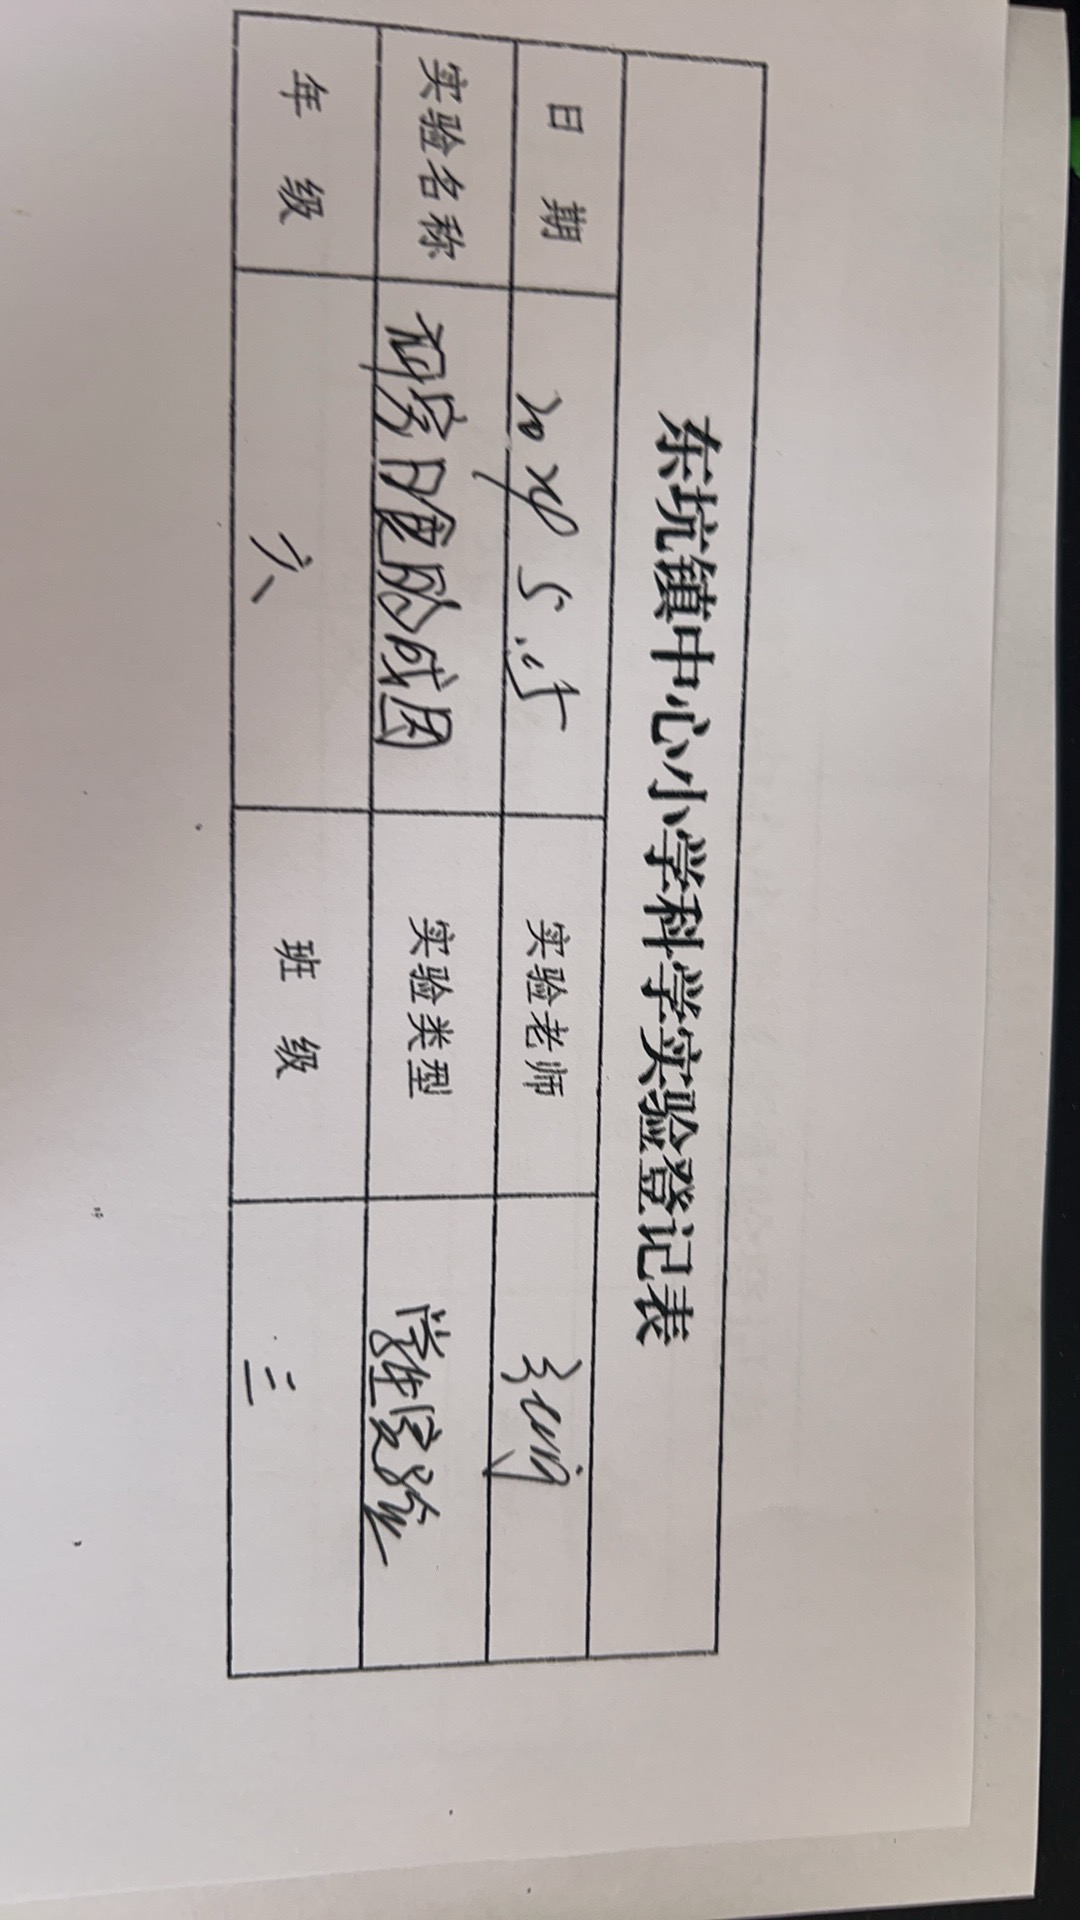 东坑镇中心小学科学实验登记表
日 期 实验老师
实验名称 研究日食的成因 实验类型 学生实验
年 级 六 班 级 二